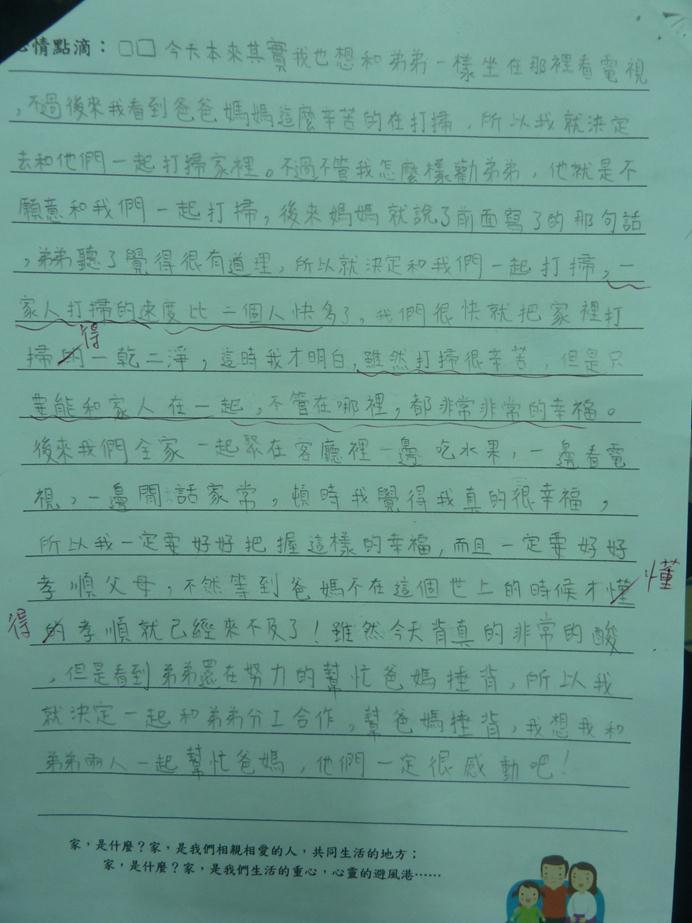 心情點滴：□□今天本來其實我也想和弟弟一樣坐在那裡看電視
，不過後來我看到爸爸媽媽這麼辛苦的在打掃，所以我就決定
去和他們一起打掃家裡。不過不管我怎麼樣勸弟弟，他就是不
願意和我們一起打掃，後來媽媽就說了前面寫了的那句話
，弟弟聽了覺得很有道理，所以就決定和我們一起打掃，一
家人打掃的速度比二個人快多了，我們很快就把家裡打
得
掃的一乾二淨，這時我才明白，雖然打掃很辛苦，但是只
要能和家人在一起，不管在哪裡，都非常非常的幸福。
後來我們全家一起聚在客廳裡一邊吃水果，一邊看電
視，一邊閒話家常，頓時我覺得我真的很幸福，
所以我一定要好好把握這樣的幸福，而且一定要好好
孝順父母，不然等到爸媽不在這個世上的時候才懂 懂
得 的孝順就已經來不及了！雖然今天背真的非常的酸
，但是看到弟弟還在努力的幫忙爸媽捶背，所以我
就決定一起和弟弟分工合作，幫爸媽捶背，我想我和
弟弟兩人一起幫忙爸媽，他們一定很感動吧！
家，是什麼？家，是我們相親相愛的人，共同生活的地方；
家，是什麼？家，是我們生活的重心，心靈的避風港……